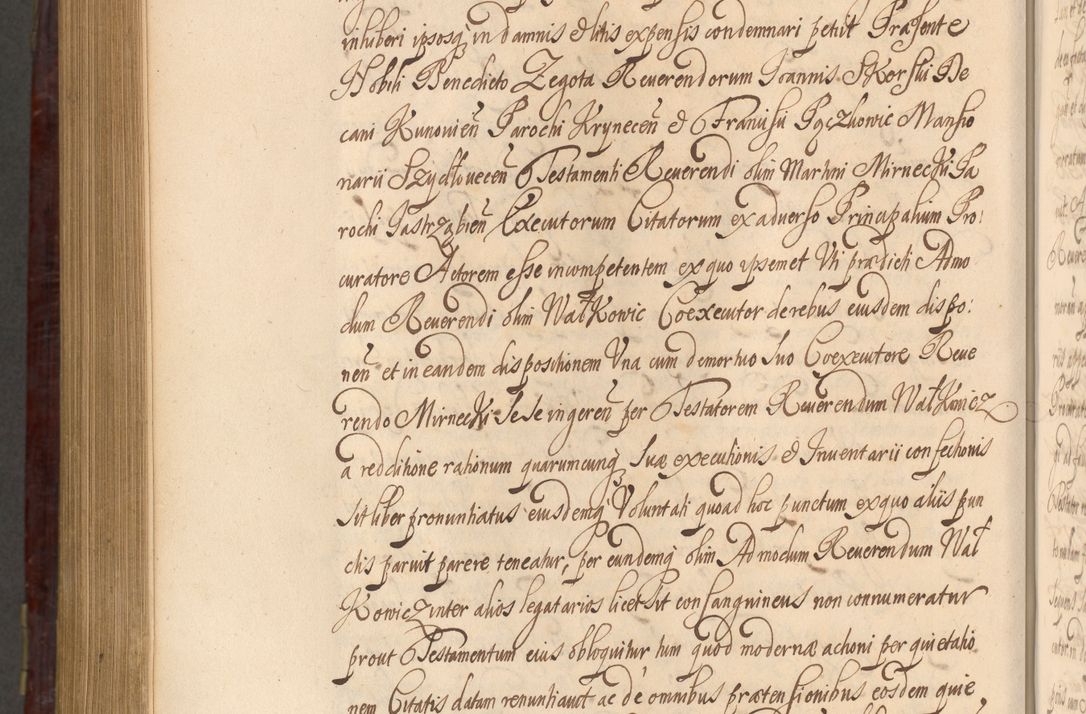 inhiberi ipsosq in damnis et litis expensis condemnari petiit Præsente
Nobili Benedicto Zegota Reuerendorum Joannis Skorski De
cani Kunovień Parochi Kryneceń et Francisci Pączkowic Mansio
narii Szydłoveceń Testamenti Reuerendi olim Martini Mirnecki Pa
rochi Jastrząbień Executorum Citatorum ex adverso Principalium Pro:
curatore Actorem esse incompetentem ex quo ipsemet Uti prædicti Admo
dum Reuerendi olim Wałkowic Coexecutor de rebus eiusdem dispo:
neń et in eandem dispositionem Una cum demortuo suo Coexecutore Reue
rendo Mirnecki sese ingereń per Testatorem Reuerendum Wałkowicz
a redditione rationum quarumcunq suæ executionis et Inventarii confectionis
sit liber pronuntiatus eiusdemq Voluntati quoad hoc punctum ex quo aliis pun
ctis paruit parere teneatur, per eundemq olim Admodum Reuerendum Wał
Kowicz inter alios legatarios licet sit consanguineus non connumeratur
prout Testamentum eius obloquitur tum quod modernæ actioni per quietatio
nem Citatis datam renuntiavit ac de omnibus prætensionibus eosdem quie